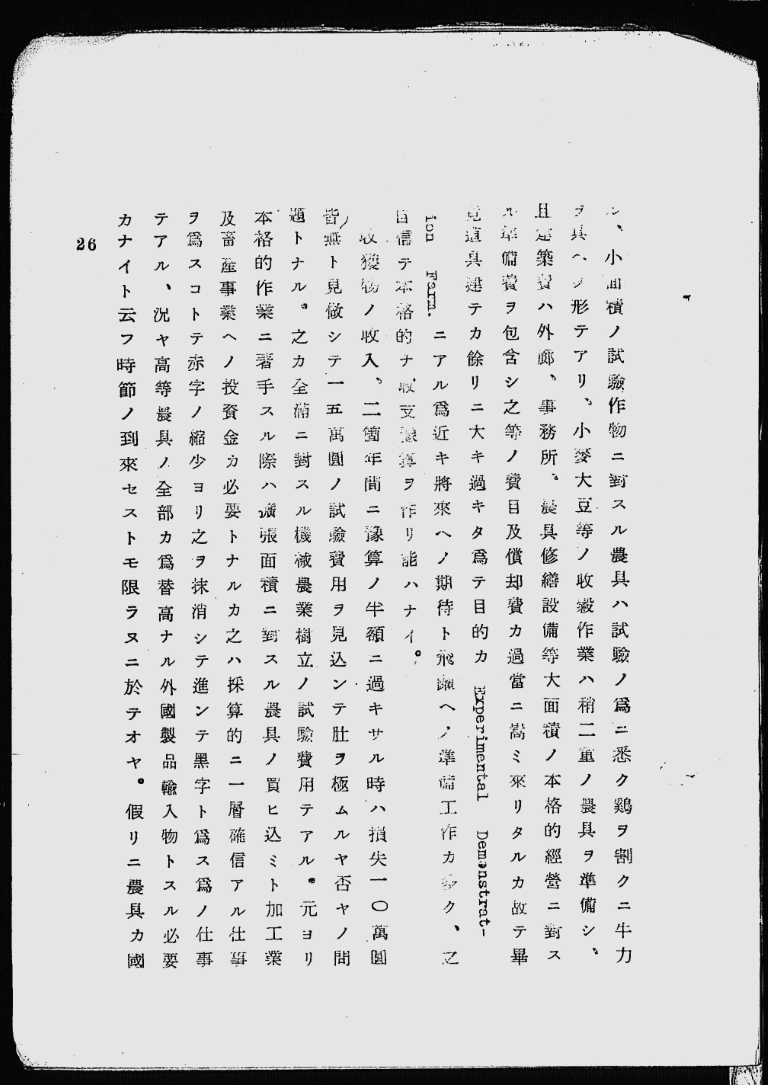 ル、小面積ノ試驗作物ニ對スル農具ハ試驗ノ爲ニ悉ク鷄ヲ割クニ牛力
ヲ具ヘタ形テアリ、小麥大豆等ノ收穀作業ハ稍二重ノ農具ヲ準備シ、
且建築費ハ外郷、事務所、農具修繕設備等大面積ノ本格的經營ニ對ス
ル準備費ヲ包含シ之等ノ費目及償却費カ過當ニ嵩ミ來リタルカ故テ畢
竟道具建テカ餘リニ大キ過キタ爲テ目的カ Experimental Demonstrat-
ion Farm. ニアル爲近キ將來ヘノ期待ト飛躍ヘノ準備工作カ多ク、之
自信テ本格的ナ收支豫算ヲ作リ能ハナイ。
收獲物ノ收入、二箇年間ニ豫算ノ半額ニ過キサル時ハ損失一〇萬圓
皆無ト見做シテ一五萬圓ノ試驗費用ヲ見込ンテ肚ヲ極ムルヤ否ヤノ問
題トナル。之カ全滿ニ對スル機械農業樹立ノ試驗費用テアル。元ヨリ
本格的作業ニ著手スル際ハ擴張面積ニ對スル農具ノ買ヒ込ミト加工業
及畜產事業ヘノ投資金カ必要トナルカ之ハ採算的ニ一層確信アル仕事
ヲ爲スコトテ赤字ノ縮少ヨリ之ヲ抹消シテ進ンテ黑字ト爲ス爲ノ仕事
テアル、況ヤ高等農具ノ全部カ爲替高ナル外國製品輸入物トスル必要
カナイト云フ時節ノ到來セストモ限ラヌニ於テオヤ。假リニ農具カ國
26